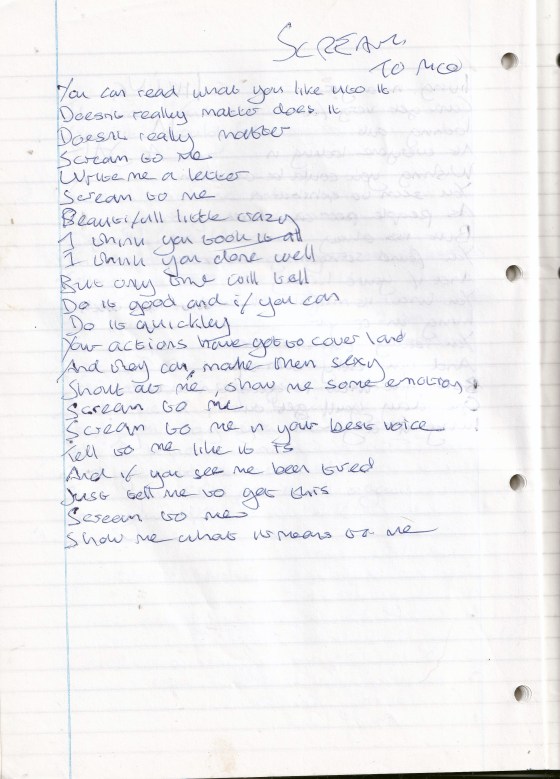 SCREAM
TO ME
You can read what you like into it
Doesnt really matter does it
Doesnt really matter
Scream to me
Write me a letter
Scream to me
Beautifull little crazy
I think you took it all
I think you done well
But only time will tell
Do it good and if you can
Do it quickley
Your actions have got to cover land
And they can make then sexy
Shout at me, show me some emotion,
Scream to me
Scream to me n your best voice
Tell to me like it is
And if you see me been tired
Just tell me to get this
Scream to me
Show me what it means to me